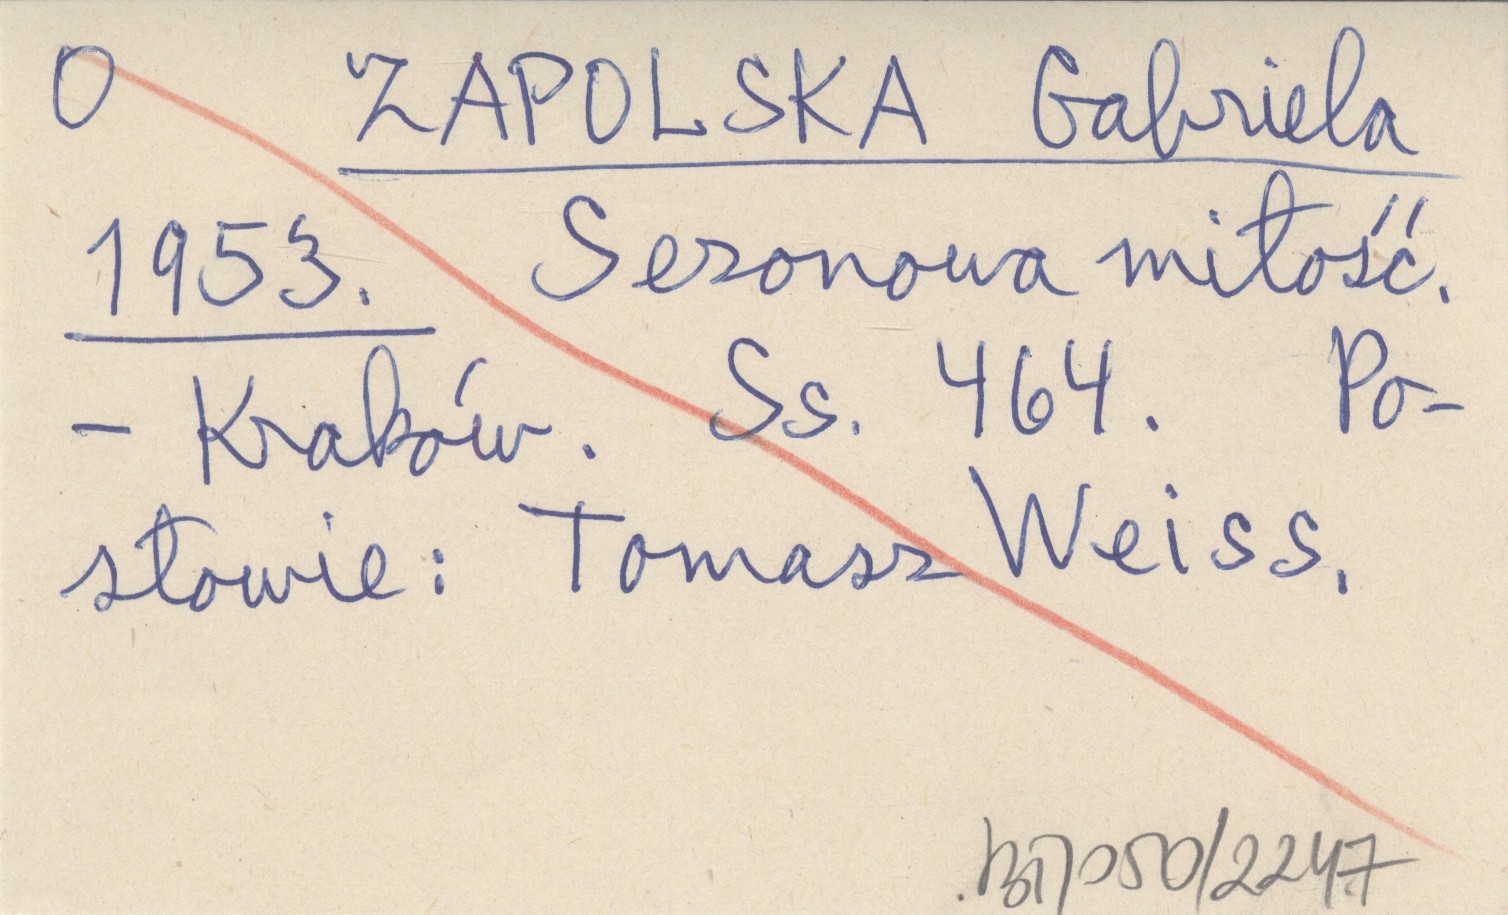 O ZAPOLSKA Gabriela
1953. Sezonowa miłość.
- Kraków. Ss. 464. Po-
słowie: Tomasz Weiss.
050/2247